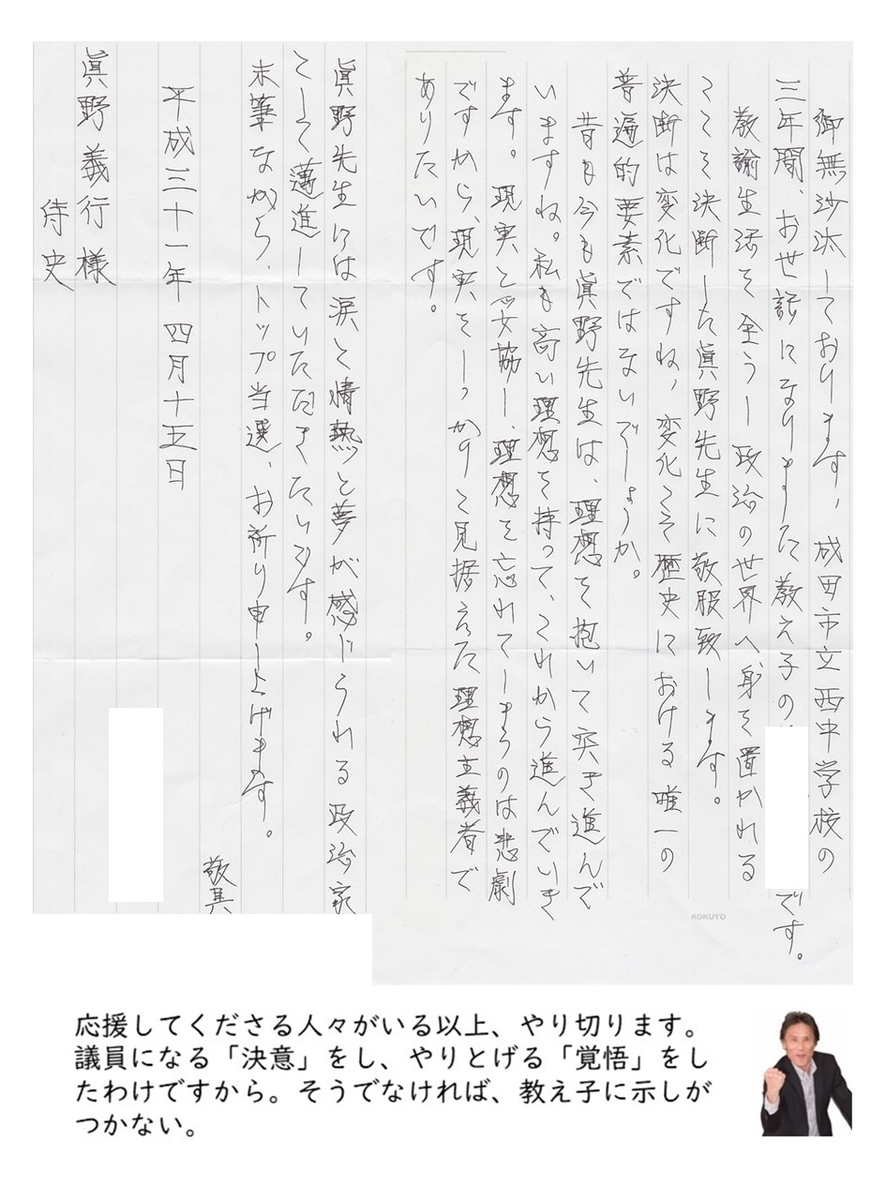 御無沙汰しております。成田市立西中学校の
三年間、お世話になりました教え子の
です。
教諭生活を全うし政治の世界へ身を置かれる
ことを決断した眞野先生に敬服致します。
決断は変化ですね。変化こそ歴史における唯一の
普遍的要素ではないでしょうか。
昔も今も眞野先生は、理想を抱いて突き進んで
いますね。私も高い理想を持って、これから進んでいき
ます。現実と妥協し、理想を忘れてしまうのは悲劇
ですから、現実をしっかりと見据えた理想主義者で
ありたいです。
眞野先生には涙と情熱と夢が感じられる政治家
として邁進していただきたいです。
末筆ながら、トップ当選、お祈り申し上げます。
敬具
平成三十一年 四月十五日
眞野義行様
侍史
KOKUYO
応援してくださる人々がいる以上、やり切ります。
議員になる「決意」をし、やりとげる「覚悟」をし
たわけですから。そうでなければ、教え子に示しが
つかない。